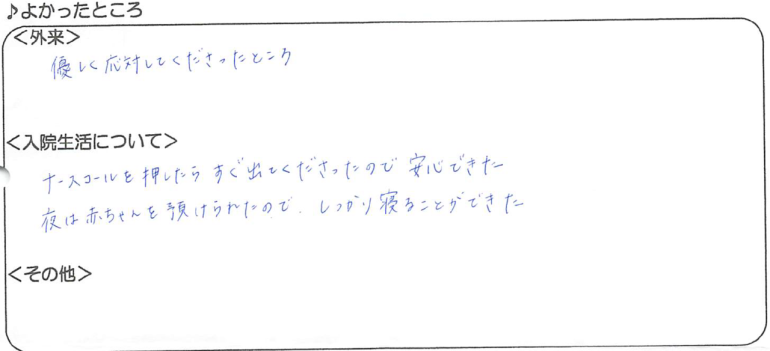 ♪よかったところ
<外来>
優しく応対してくださったところ
<入院生活について>
ナースコールを押したらすぐ出てくださったので安心できた
夜は赤ちゃんを預けられたので、しっかり寝ることができた
<その他>